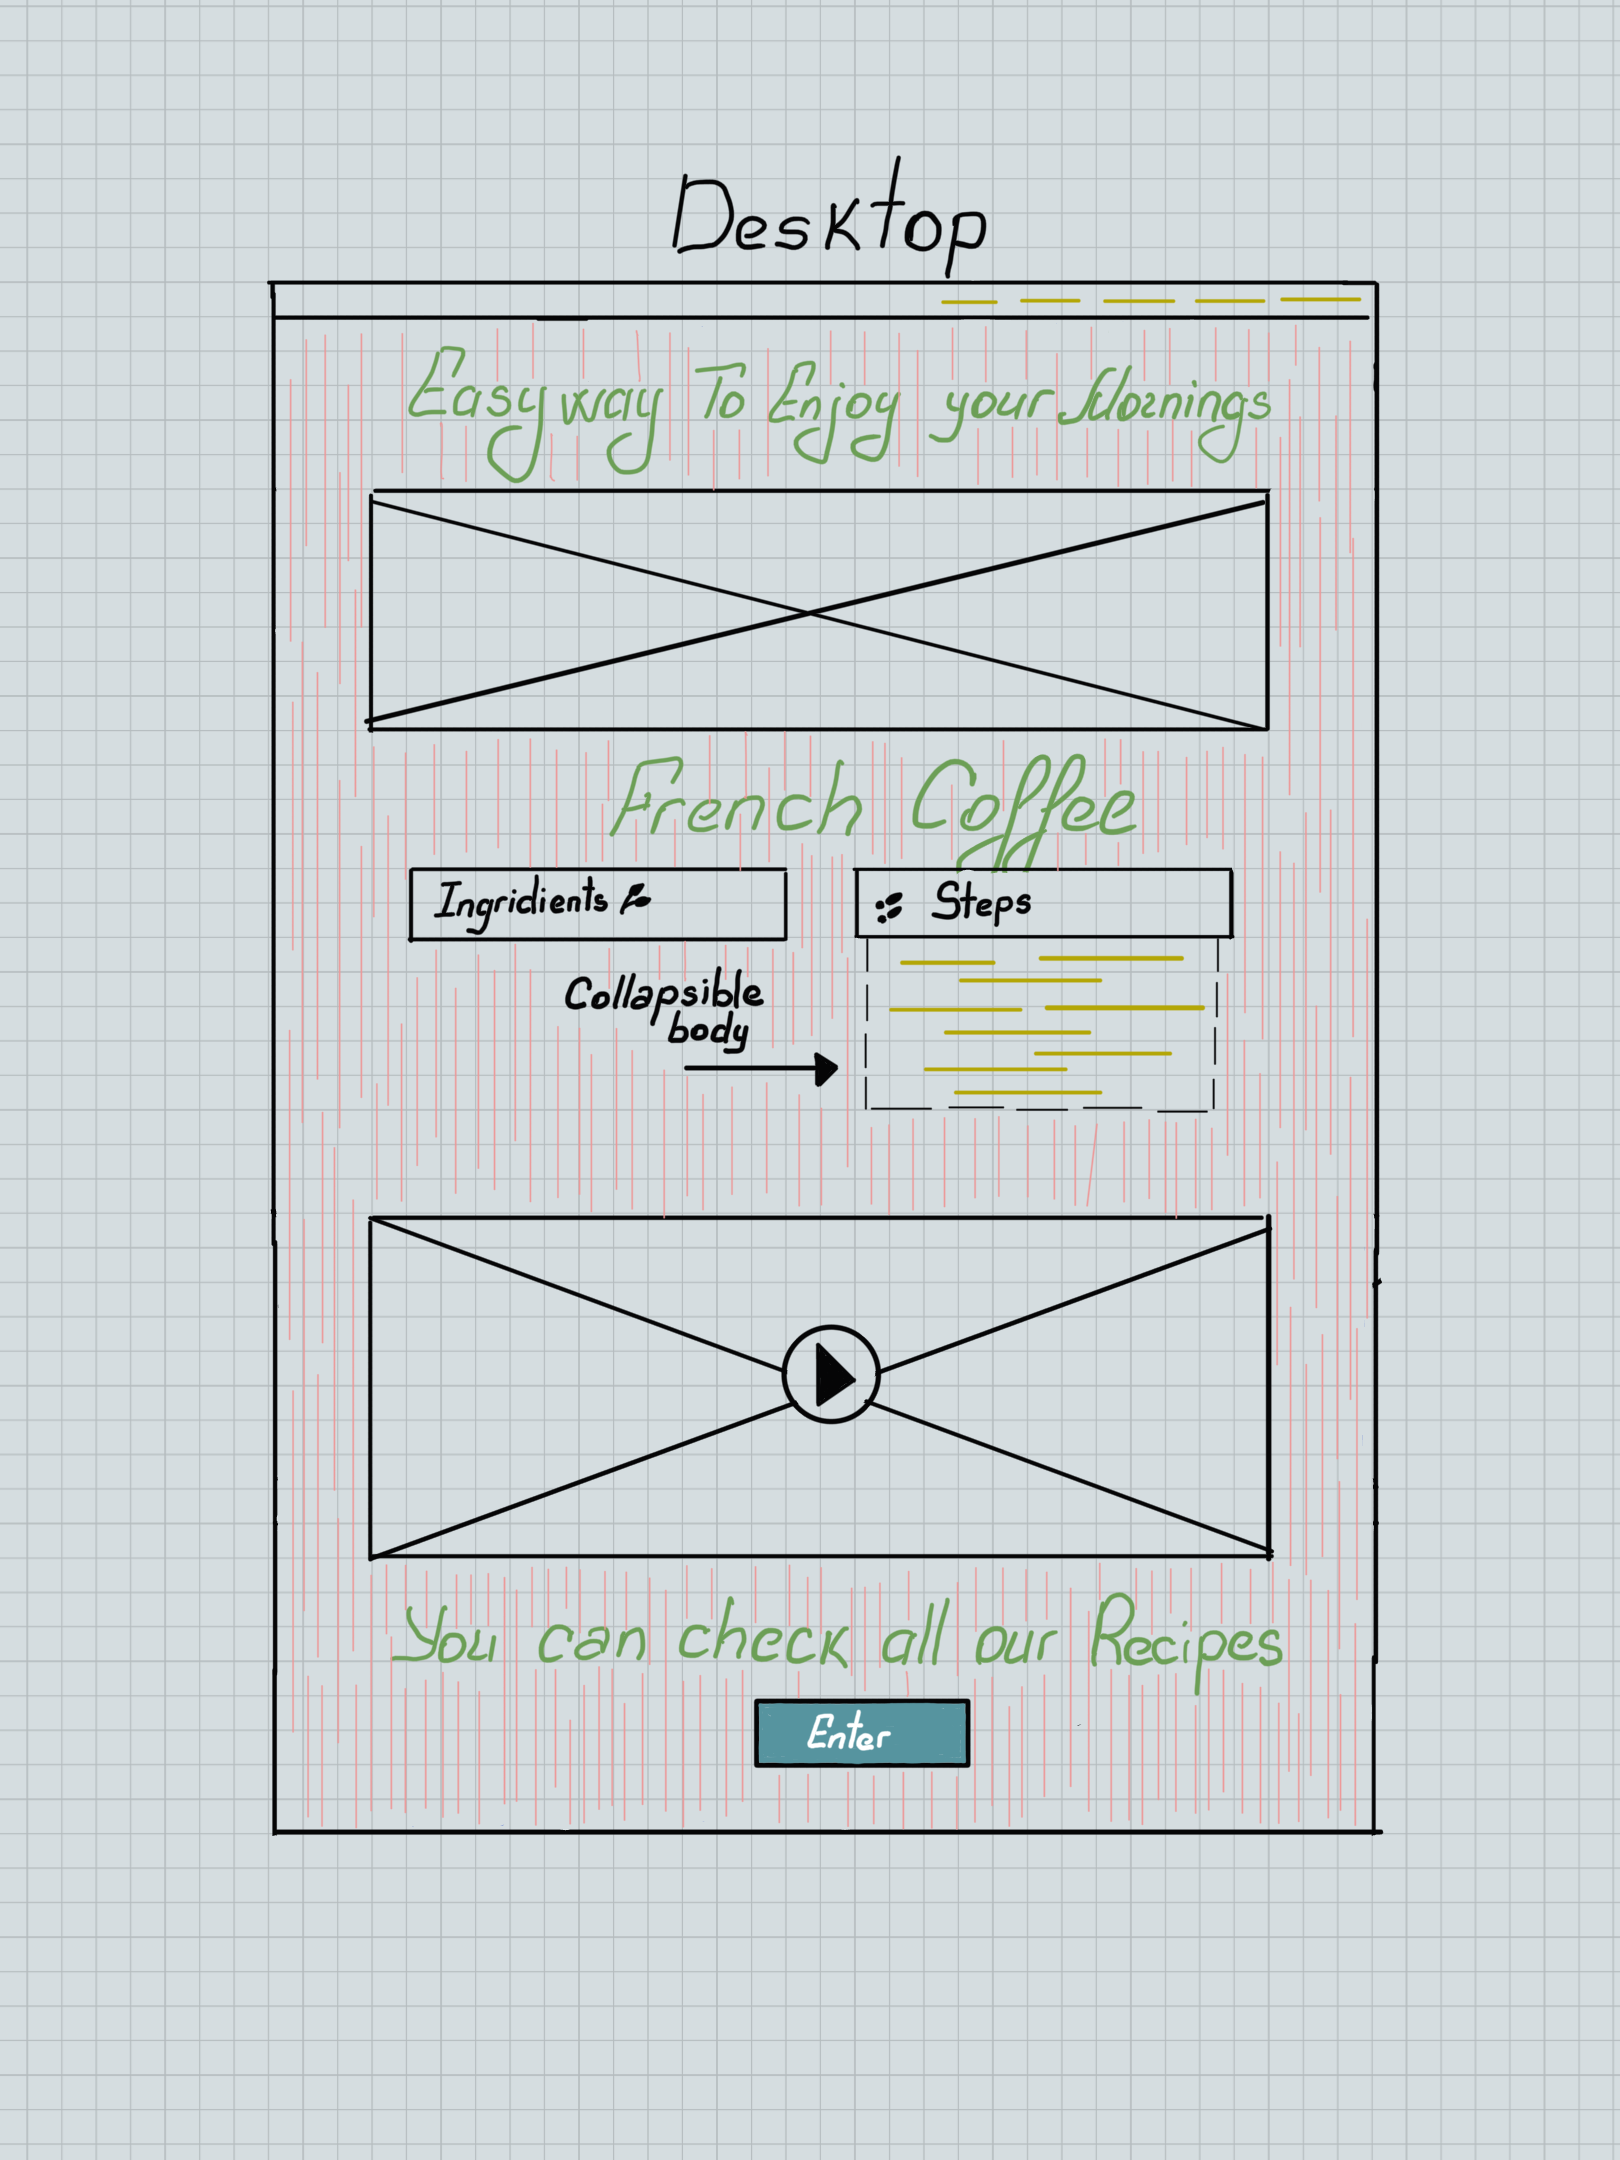 Desktop
Easy way To Enjoy your Mornings
French Coffee
Ingridients
Steps
Collapsible
body
You can check all our Recipes
Enter